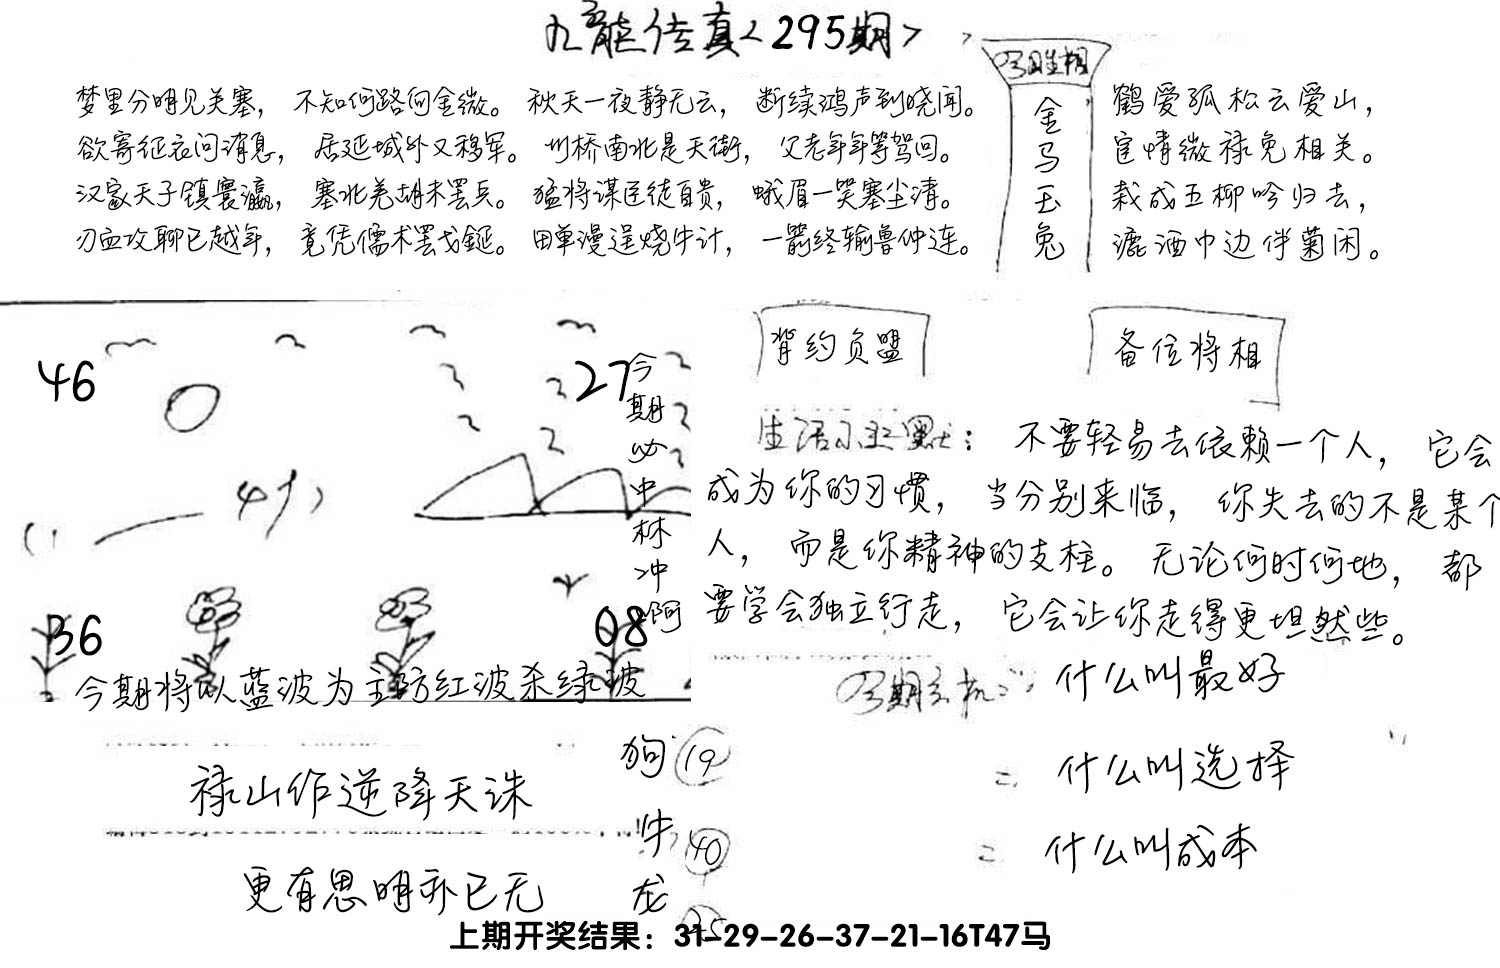 九龍传真<295期>
梦里分明见关塞，不知何路向金微。秋天一夜静无云，断续鸿声到晓闻。
欲寄征衣问消息，居延城外又移军。州桥南北是天街，父老年年等驾回。
汉家天子镇寰瀛，塞北羌胡未罢兵。猛将谋臣徒自贵，蛾眉一笑塞尘清。
刃血攻聊已越年，竟凭儒术罢戈鋋。田单漫逞烧牛计，一箭终输鲁仲连。
金马玉兔
鹤爱孤松云爱山，
宦情微禄免相关。
栽成五柳吟归去，
漉酒巾边伴菊闲。
46
27
今期必中林冲啊
36
08
今期将以蓝波为主防红波杀绿波
背约负盟
备位将相
生活小幽默：不要轻易去依赖一个人，它会
成为你的习惯，当分别来临，你失去的不是某个
人，而是你精神的支柱。无论何时何地，都
要学会独立行走，它会让你走得更坦然些。
今期玄机：什么叫最好
二 什么叫选择
二 什么叫成本
禄山作逆降天诛
更有思明亦已无
狗 19
牛 40
龙 25
上期开奖结果：31-29-26-37-21-16T47马